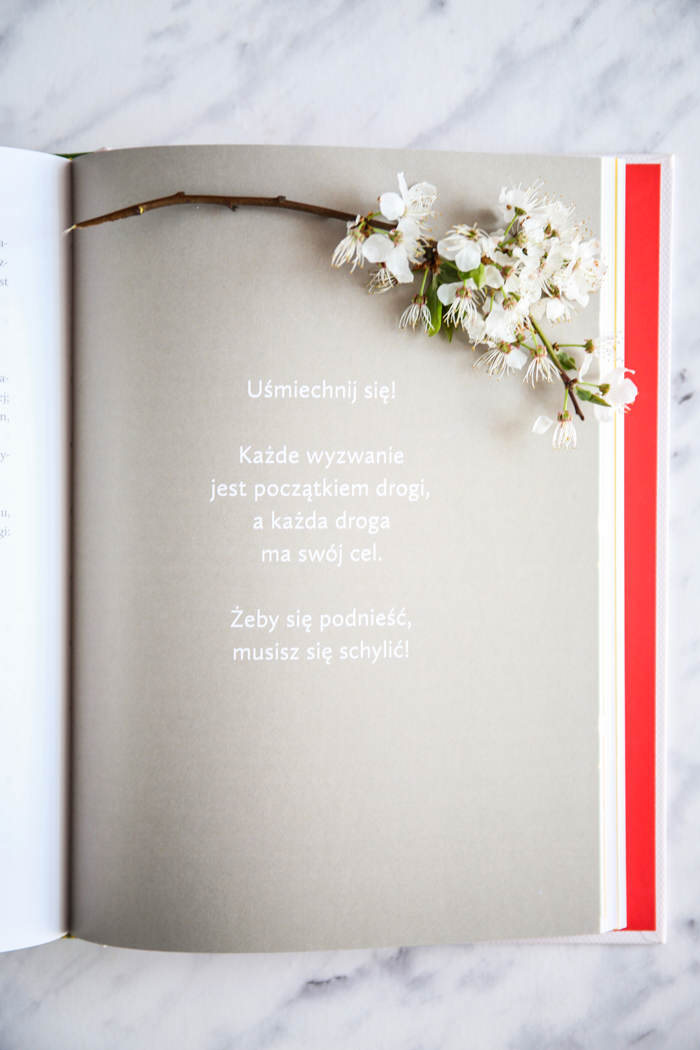 Uśmiechnij się!
Każde wyzwanie
jest początkiem drogi,
a każda droga
ma swój cel.
Żeby się podnieść,
musisz się schylić!